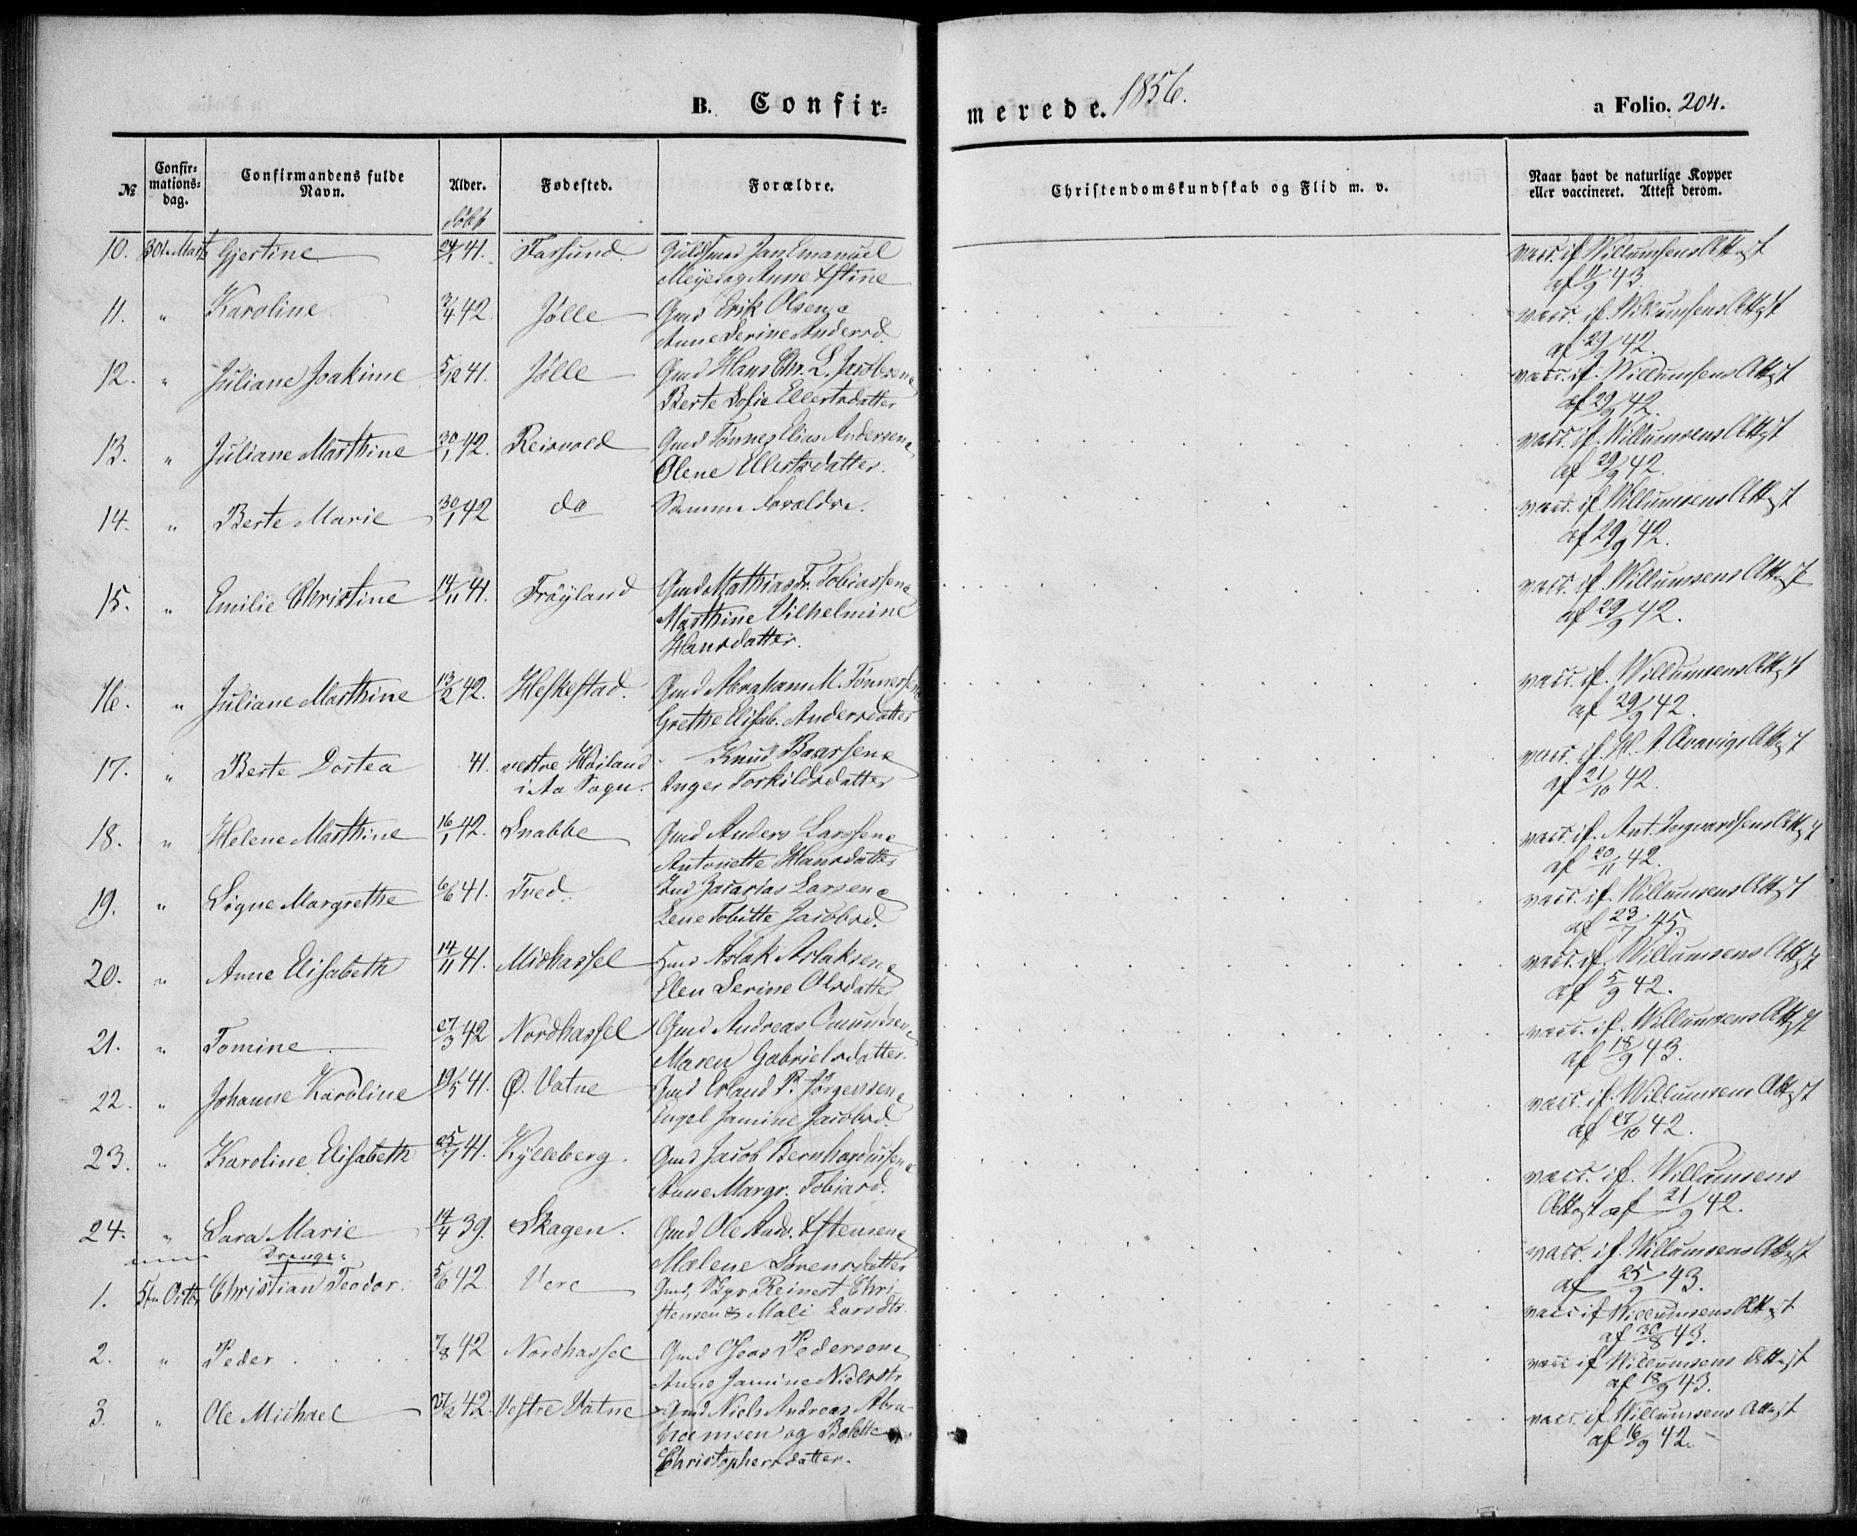 B. Confir=
merede. 1856.
a Folio. 204.
№
Confir=
mations=
dag.
Confirmandens fulde
Navn.
Alder.
Fødested.
Forældre.
Christendomskundskab og Flid m. v.
Naar havt de naturlige Kopper
eller vaccineret. Attest derom.
døbt
10. 30te Marts Gjertine 41. Farsund. Guldsmed Jan Emanuel
Meyer og Anne
vacc. if. Willumsens Attest
af 43.
11. " Karoline 3/4 42. Jølle Gmd Erik Olsen &
Anne Serine Andersd.
vacc. if. Willumsens Attest
af 29/9 42.
12. " Juliane Joakime 5/12 41. Jølle Gmd Hans Chr. L. Jacobsen &
Berte Sofie Ellertsdatter
vacc. if. Willumsens Attest
af 29/9 42.
13. " Juliane Marthine 30/1 42. Reisvold Gmd Tønnes Elias Andersen &
Olene Ellertsdatter.
vacc. if. Willumsens Attest
af 29/9 42.
14. " Berte Marie 30/1 42 do Samme Forældre.
vacc. if. Willumsens Attest
af 29/9 42.
15. " Emilie Christine 14/11 41. Frøyland Gmd Mathias Fr. Tobiassen &
Marthine Vilhelmine
Hansdatter.
vacc. if. Willumsens Attest
af 29/9 42.
16. " Juliane Marthine 13/2 42. Heskestad. Gmd Abraham M. Tønnessen
Grethe Elisab. Andersdatter
vacc. if. Willumsens Attest
af 29/9 42.
17. " Berte Dortea 41. vestre Høiland
i Aa Sogn.
Knud Baarsen &
Inger Torkildsdatter
vacc. if. Attest
af 21/10 42.
18. " Helene Marthine 16/1 42. Snabbe Gmd Anders Larssen &
Antonette Hansdatter
vacc. if. Ant. Ingvardsens Attest
af 20/11 42.
19. " Signe Margrethe 6/6 41. Tved. Zacarias Larsen &
Lene Tobitte Jacobsd.
vacc. if. Willumsens Attest
af 23/7 45.
20. " Anne Elisabeth 14/11 41. Midhassel Aslak Aslaksen &
Elen Serine Olsdatter
vacc. if. Willumsens Attest
af 5/9 42.
21. " Tomine 27/3 42 Nordhassel Gmd Andreas Omundsen &
Maren Gabrielsdatter.
vacc. if. Willumsens Attest
af 18/9 43.
22. " Johanne Karoline 19/5 41. Ø. Vatne Gmd Erland P. Jørgensen &
Engel Jamine Jacobsd.
vacc. if. Willumsens Attest
af 27/10 42.
23. " Karoline Elisabeth 25/7 41. Kylleberg. Gmd Jacob Bernhardussen &
Anne Margr. Tobiasd.
vacc. if. Willumsens
Attest af 21/9 42.
24. " Sara Marie 14/4 39. Skagen. Gmd Ole Andr. &
Malene Sørensdatter
vacc. if. Willumsens Attest
af 25/9 43.
Drenge:
1. 5te Octbr Christian Teodor. 5/6 42 Vere Gmd, Reinert Chri
stensen & Mali Larsdtr.
vacc if Willumsens Attest
af 30/8 43.
2. " Peder 7/8 42 Nordhassel Gmd Jens Pedersen &
Anne Jamine Nielsdtr
vacc if Willumsens Attest
af 18/9 43.
3. " Ole Michael 27/2 42. Vestre Vatne Gmd Niels Andreas Abra
hamsen og Bolette
Christophersdatter.
vacc. if Willumsens Attest
af 16/9 42.